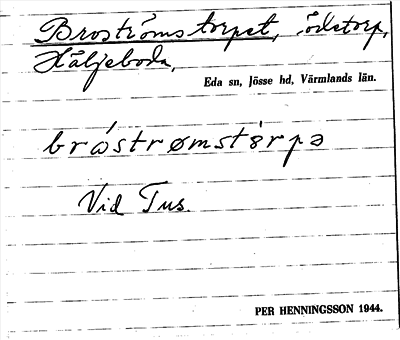 Broströmstorpet, ödetorp,
Häljeboda,
Eda sn, Jösse hd, Värmlands län.
bròstrømstòrpə
Vid Tus.
PER HENNINGSSON 1944.